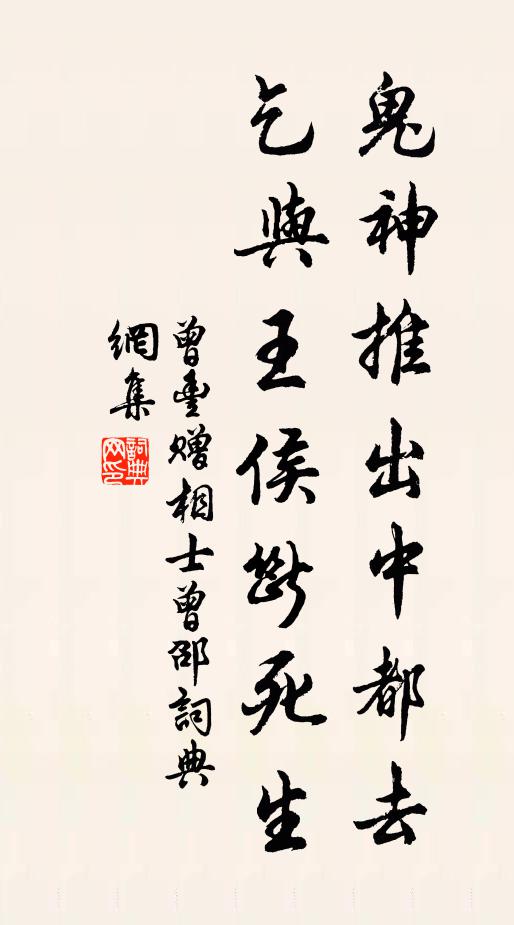 鬼神推出中都去
乞與王侯斷死生
曾豊贈相士曾邵詞典
網集
詞典
网印